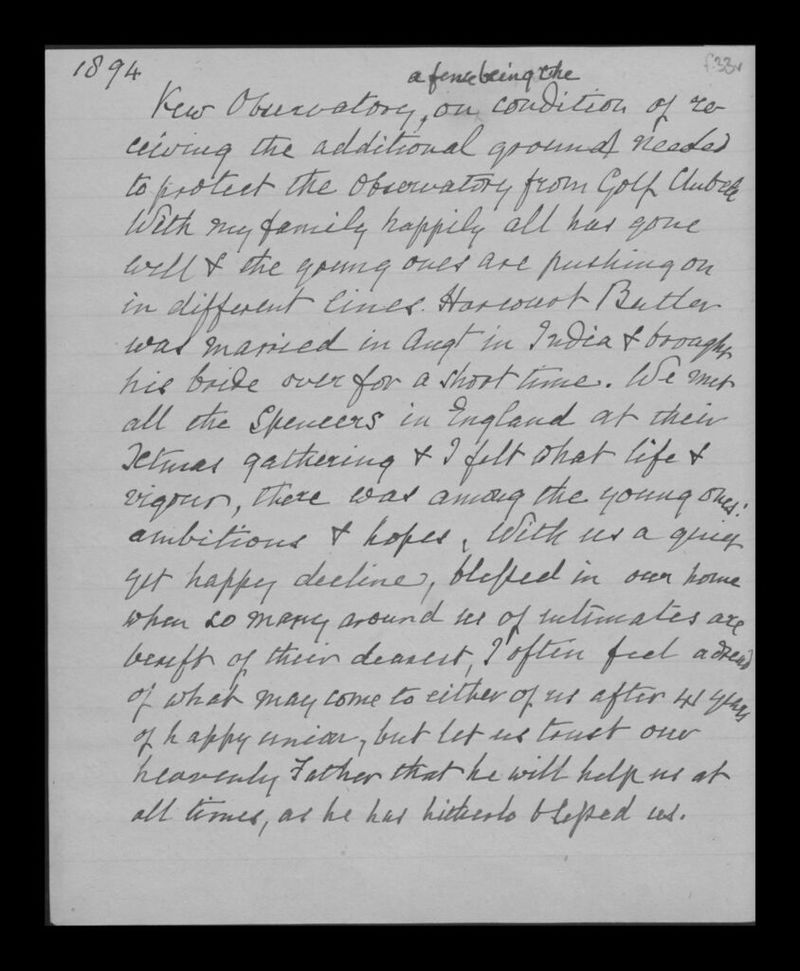 1894
f.33v
a fence being the
Kew Observatory, on condition of re-
ceiving the additional ground needed
to protect the Observatory from Golf Club &c
With my family happily all has gone
well & the young ones are pushing on
in different lines. Harcourt Butler
was married in Augt in India & brought
his bride over for a short time. We met
all the Spencers in England at their
Xtmas gathering & I felt what life &
vigour, there was among the young ones:
ambitions & hopes. With us a quiet
yet happy decline, blessed in our home
when so many around us of intimates are
bereft of their dearest, I often feel a dread
of what may come to either of us after 41 years
of happy union, but let us trust our
heavenly Father that he will help us at
all times, as he has hitherto blessed us.